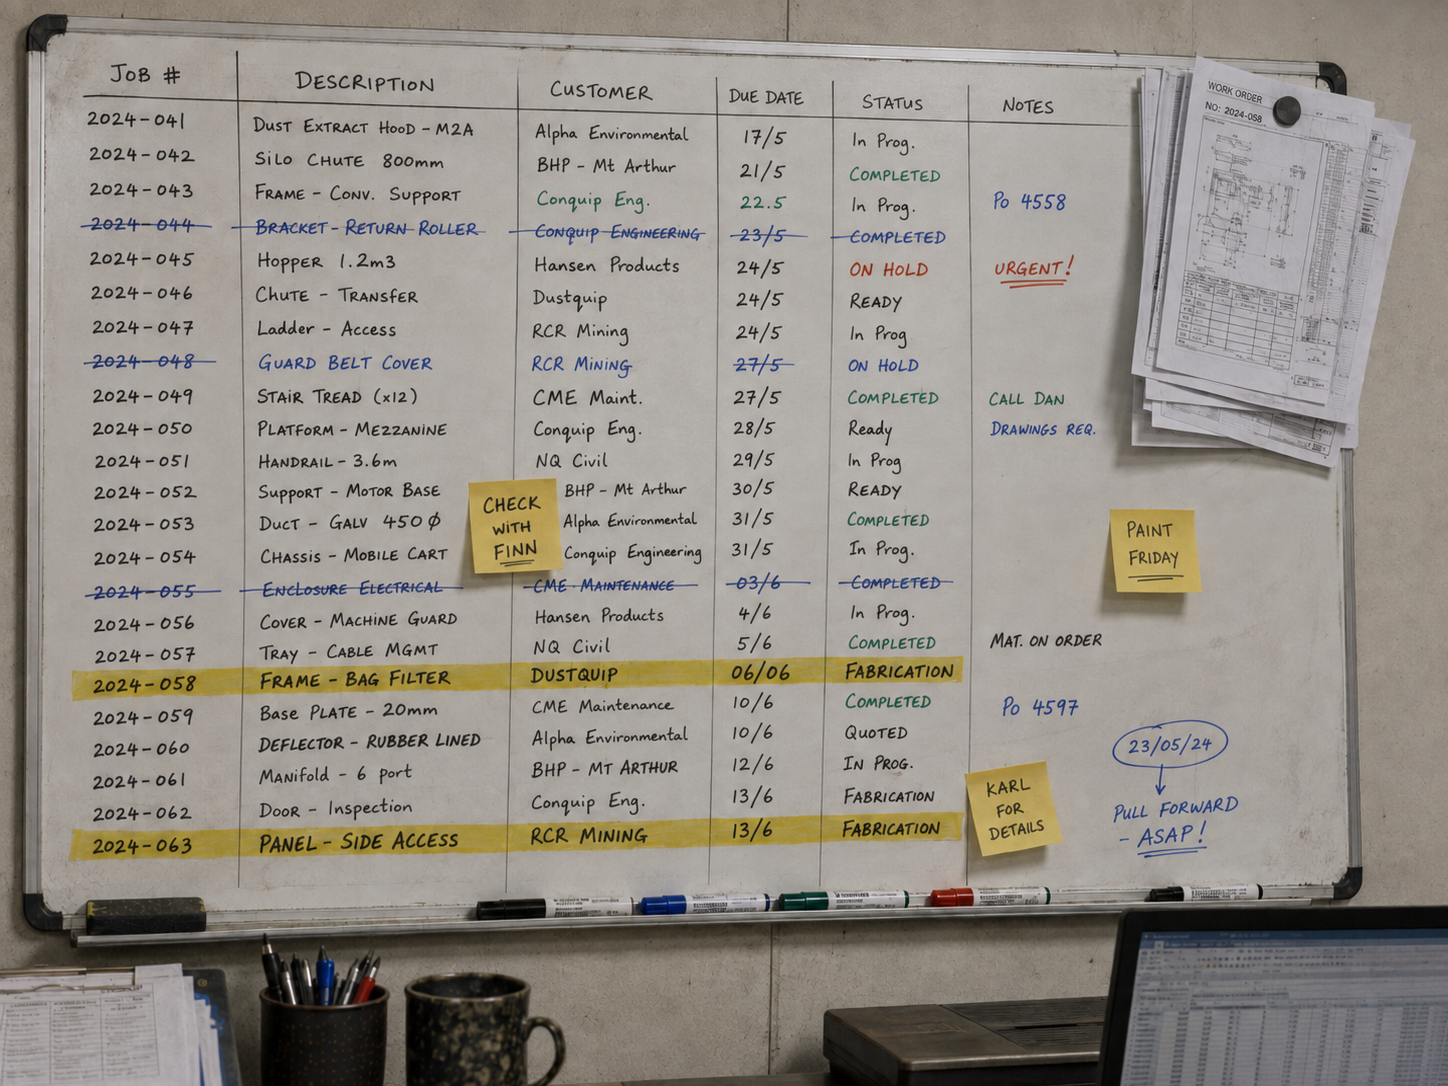 JOB # DESCRIPTION CUSTOMER DUE DATE STATUS NOTES
2024-041 DUST EXTRACT HOOD - M2A Alpha Environmental 17/5 In Prog.
2024-042 SILO CHUTE 800mm BHP - Mt Arthur 21/5 COMPLETED
2024-043 FRAME - CONV. SUPPORT Conquip Eng. 22.5 In Prog. Po 4558
2024-044 BRACKET - RETURN ROLLER CONQUIP ENGINEERING 23/5 COMPLETED
2024-045 HOPPER 1.2m3 Hansen Products 24/5 ON HOLD URGENT!
2024-046 CHUTE - TRANSFER Dustquip 24/5 READY
2024-047 Ladder - Access RCR Mining 24/5 In Prog
2024-048 GUARD BELT COVER RCR MINING 27/5 ON HOLD
2024-049 STAIR TREAD (x12) CME Maint. 27/5 COMPLETED CALL DAN
2024-050 PLATFORM - MEZZANINE Conquip Eng. 28/5 Ready DRAWINGS REQ.
2024-051 HANDRAIL - 3.6m NQ Civil 29/5 In Prog
2024-052 Support - MOTOR BASE BHP - Mt Arthur 30/5 READY
2024-053 DUCT - GALV 450 Ø Alpha Environmental 31/5 COMPLETED
2024-054 CHASSIS - MOBILE CART Conquip Engineering 31/5 In Prog.
2024-055 ENCLOSURE ELECTRICAL CME MAINTENANCE 03/6 COMPLETED
2024-056 COVER - MACHINE GUARD Hansen Products 4/6 In Prog.
2024-057 TRAY - CABLE MGMT NQ Civil 5/6 COMPLETED MAT. ON ORDER
2024-058 FRAME - BAG FILTER DUSTQUIP 06/06 FABRICATION
2024-059 Base PLATE - 20mm CME Maintenance 10/6 COMPLETED Po 4597
2024-060 DEFLECTOR - RUBBER LINED Alpha Environmental 10/6 QUOTED
2024-061 Manifold - 6 port BHP - MT ARTHUR 12/6 IN PROG.
2024-062 Door - Inspection Conquip Eng. 13/6 FABRICATION
2024-063 PANEL - SIDE ACCESS RCR MINING 13/6 FABRICATION
CHECK
WITH
FINN
PAINT
FRIDAY
KARL
FOR
DETAILS
23/05/24
PULL FORWARD
- ASAP!
WORK ORDER
NO: 2024-058